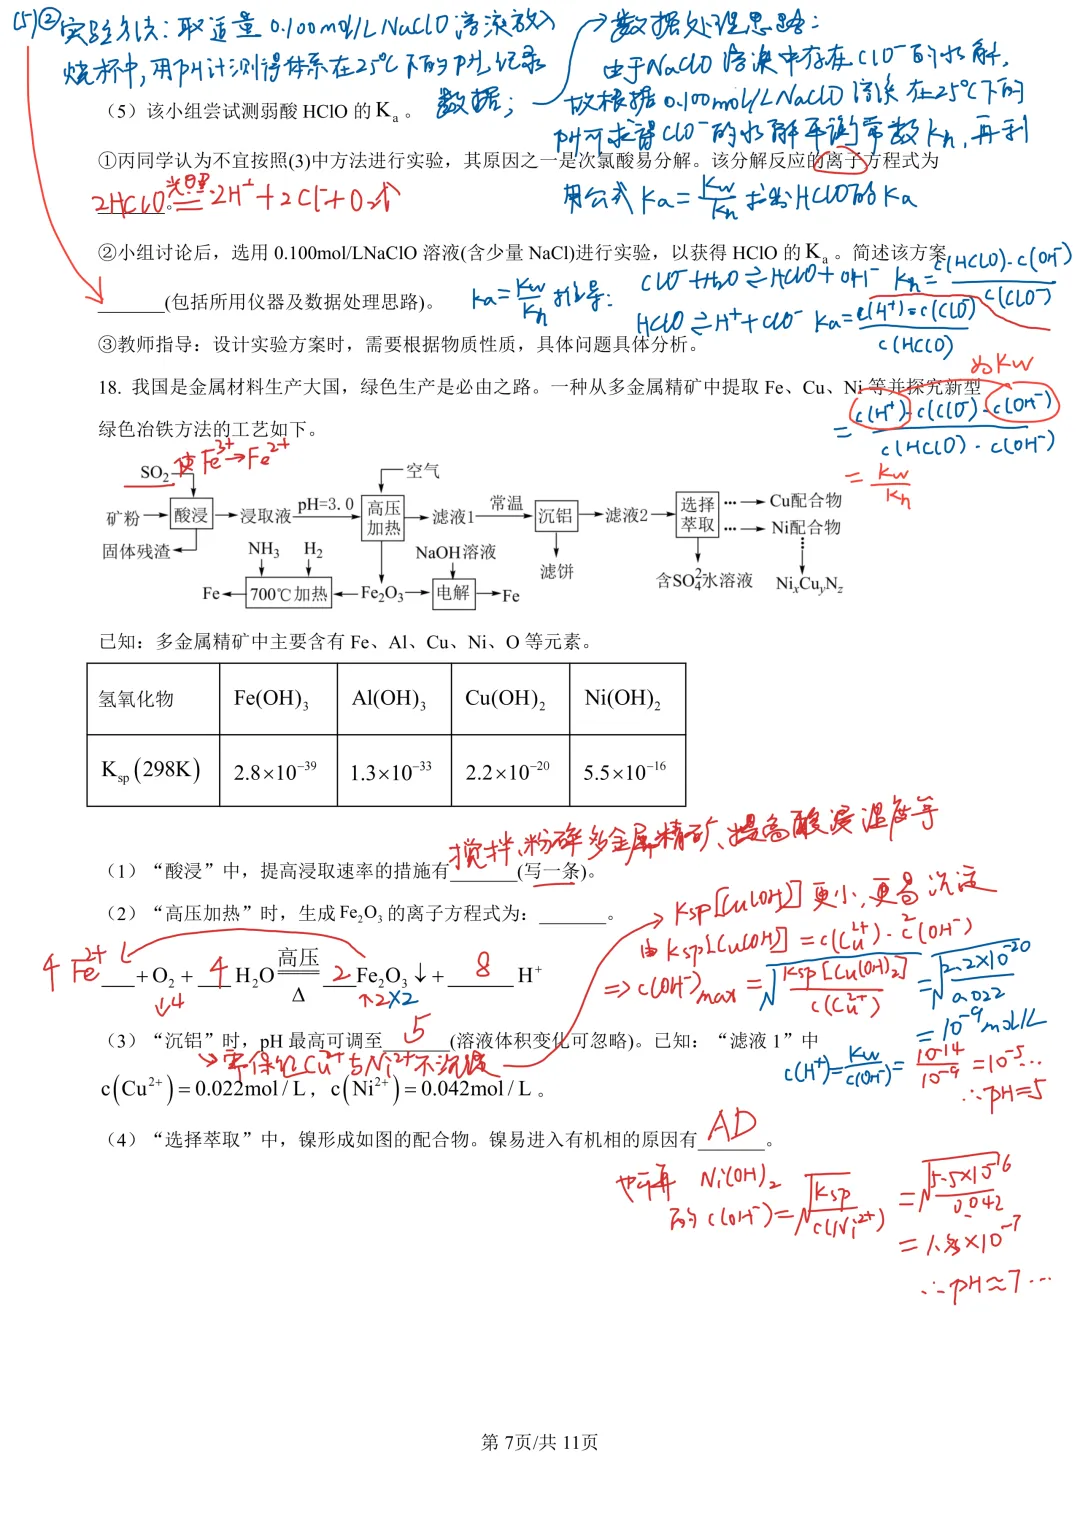 (5)② 实验方法：取适量0.100mol/L NaClO溶液放入
烧杯中，用pH计测得体系在25℃下的pH，记录
数据；
→数据处理思路：
由于NaClO溶液中存在ClO⁻的水解，
故根据0.100mol/L NaClO溶液在25℃下的
pH可求得ClO⁻的水解平衡常数Kh，再利
用公式Ka=Kw/Kh求出HClO的Ka
（5）该小组尝试测弱酸 HClO 的 Ka 。
①丙同学认为不宜按照(3)中方法进行实验，其原因之一是次氯酸易分解。该分解反应的离子方程式为
_______。
2HClO 光照══ 2H⁺+2Cl⁻+O₂↑
②小组讨论后，选用 0.100mol/LNaClO 溶液(含少量 NaCl)进行实验，以获得 HClO 的 Ka 。简述该方案
_______(包括所用仪器及数据处理思路)。
Ka=Kw/Kh推导：
ClO⁻+H₂O⇌HClO+OH⁻ Kh=c(HClO)·c(OH⁻)/c(ClO⁻)
HClO⇌H⁺+ClO⁻ Ka=c(H⁺)·c(ClO⁻)/c(HClO)
③教师指导：设计实验方案时，需要根据物质性质，具体问题具体分析。
为Kw
=c(H⁺)·c(ClO⁻)·c(OH⁻)/c(HClO)·c(OH⁻)
=Kw/Kh
18. 我国是金属材料生产大国，绿色生产是必由之路。一种从多金属精矿中提取 Fe、Cu、Ni 等并探究新型
绿色冶铁方法的工艺如下。
使Fe³⁺→Fe²⁺
SO₂ 空气
矿粉 酸浸 浸取液 pH=3.0 高压加热 滤液1 常温 沉铝 滤液2 选择萃取 Cu配合物
Ni配合物
固体残渣 NH₃ H₂ NaOH溶液 滤饼 含SO₄²⁻水溶液 NixCuyNz
Fe 700℃加热 Fe₂O₃ 电解 Fe
已知：多金属精矿中主要含有 Fe、Al、Cu、Ni、O 等元素。
氢氧化物 Fe(OH)₃ Al(OH)₃ Cu(OH)₂ Ni(OH)₂
Ksp(298K) 2.8×10⁻³⁹ 1.3×10⁻³³ 2.2×10⁻²⁰ 5.5×10⁻¹⁶
搅拌、粉碎多金属精矿、提高酸浸温度等
（1）“酸浸”中，提高浸取速率的措施有_______(写一条)。
（2）“高压加热”时，生成 Fe₂O₃ 的离子方程式为：_______。
4Fe²⁺+O₂+4H₂O 高压══△ 2Fe₂O₃↓+8H⁺
↓4 ↑2×2
→Ksp[Cu(OH)₂]更小，更易沉淀
由Ksp[Cu(OH)₂]=c(Cu²⁺)·c²(OH⁻)
⇒c(OH⁻)max=√(Ksp[Cu(OH)₂]/c(Cu²⁺))=√(2.2×10⁻²⁰/0.022)
=10⁻⁹mol/L
c(H⁺)=Kw/c(OH⁻)=10⁻¹⁴/10⁻⁹=10⁻⁵...
∴pH=5
（3）“沉铝”时，pH 最高可调至 5 (溶液体积变化可忽略)。已知：“滤液 1”中
→需保证Cu²⁺与Ni²⁺不沉淀
c(Cu²⁺)=0.022mol/L，c(Ni²⁺)=0.042mol/L 。
（4）“选择萃取”中，镍形成如图的配合物。镍易进入有机相的原因有 AD 。
也可算 Ni(OH)₂
的c(OH⁻)=√(Ksp/c(Ni²⁺))=√(5.5×10⁻¹⁶/0.042)
∴pH≈7...
第 7页/共 11页